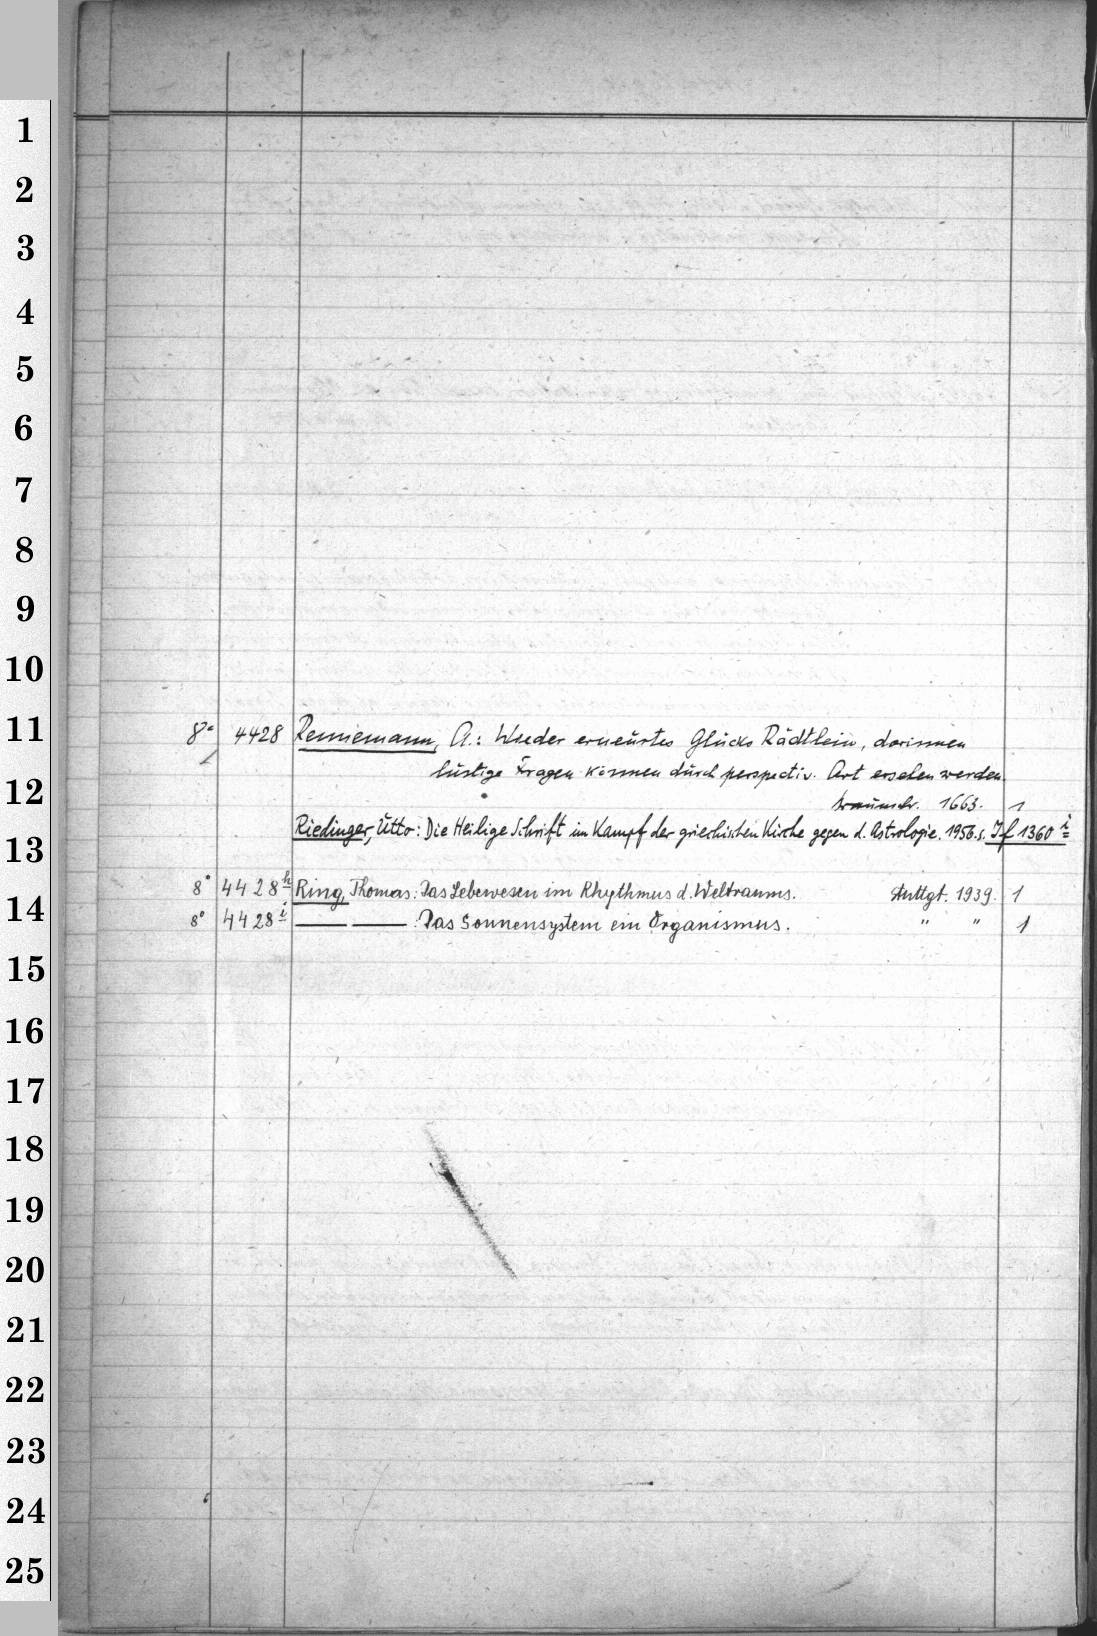 1
2
3
4
5
6
7
8
9
10
11
12
13
14
15
16
17
18
19
20
21
22
23
24
25
8° 4428 Renniemann, A.: Wieder erneürtes Glücks Rädtlein, dorinnen
lüstige Fragen können dürch perspectiv. Art ersehen werden.
1663. 1
Riedinger, Utto: Die Heilige Schrift im Kampf der griechischen Kirche gegen d. Astrologie. 1956. s. If 1360 i
8° 4428 h Ring, Thomas: Das Lebewesen im Rhythmus d. Weltraums. Stuttgt. 1939. 1
8° 4428 i —— —— : Das Sonnensystem ein Organismus. " " 1